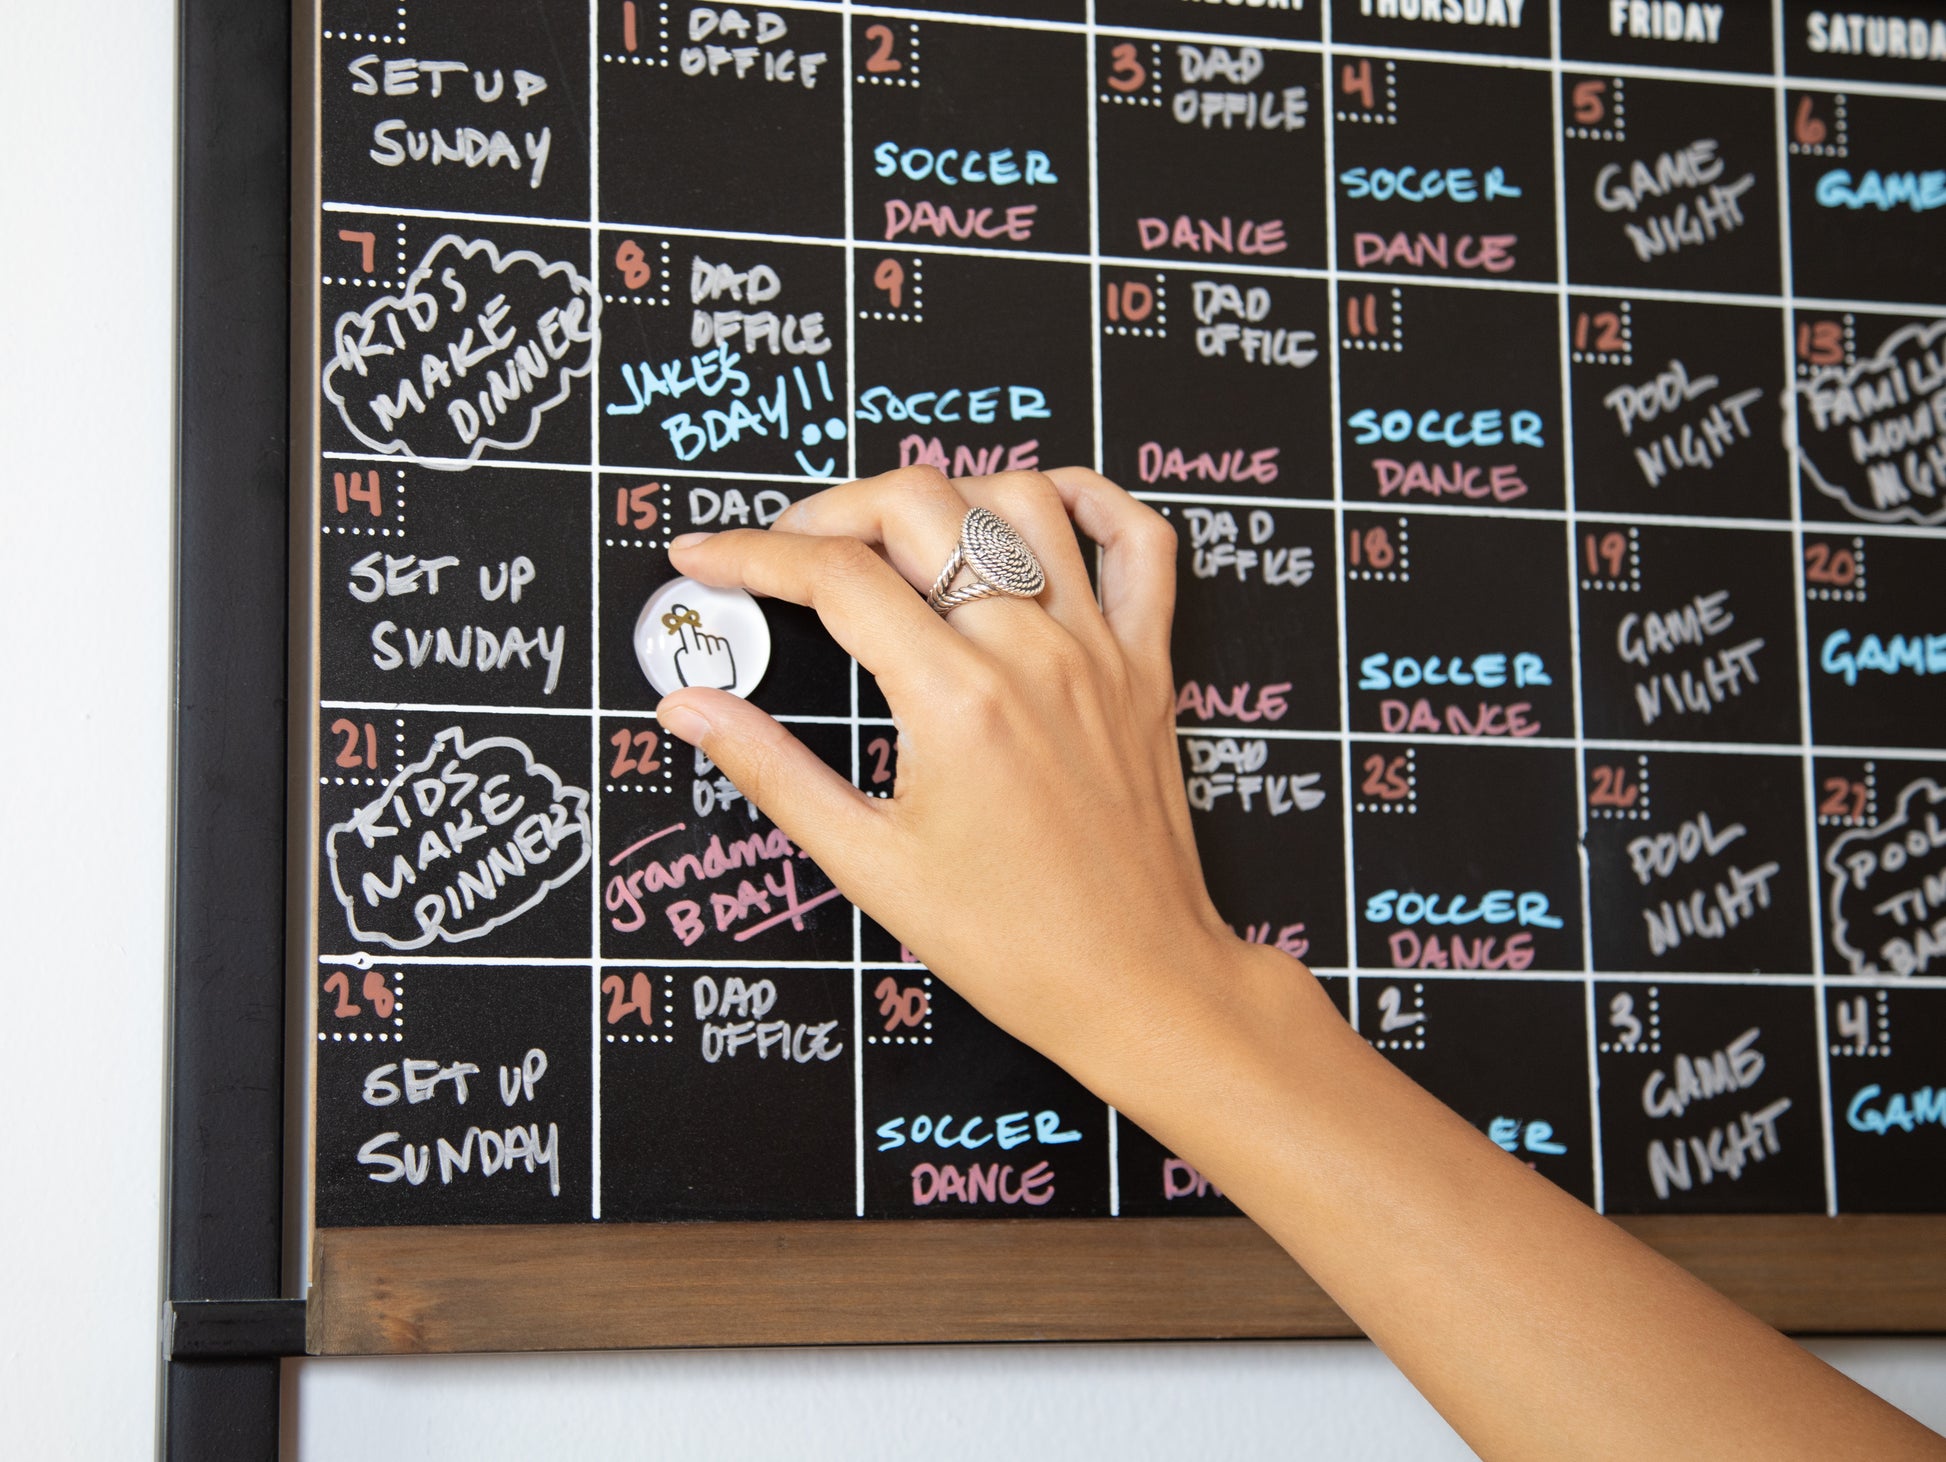 THURSDAY
FRIDAY
SET UP
SUNDAY
1 DAD
OFFICE
2
SOCCER
DANCE
3 DAD
OFFICE
DANCE
4
SOCCER
DANCE
5
GAME
NIGHT
6
GAME
7
KIDS
MAKE
DINNER
8 DAD
OFFICE
JAKE'S
BDAY!!
9
SOCCER
DANCE
10 DAD
OFFICE
DANCE
11
SOCCER
DANCE
12
POOL
NIGHT
13
14
SET UP
SUNDAY
15 DAD
DAD
OFFICE
18
SOCCER
DANCE
19
GAME
NIGHT
20
GAME
21
KIDS
MAKE
DINNER
22
grandma's
BDAY
DAD
OFFICE
25
SOCCER
DANCE
26
POOL
NIGHT
27
POOL
28
SET UP
SUNDAY
29 DAD
OFFICE
30
SOCCER
DANCE
2
3
GAME
NIGHT
4